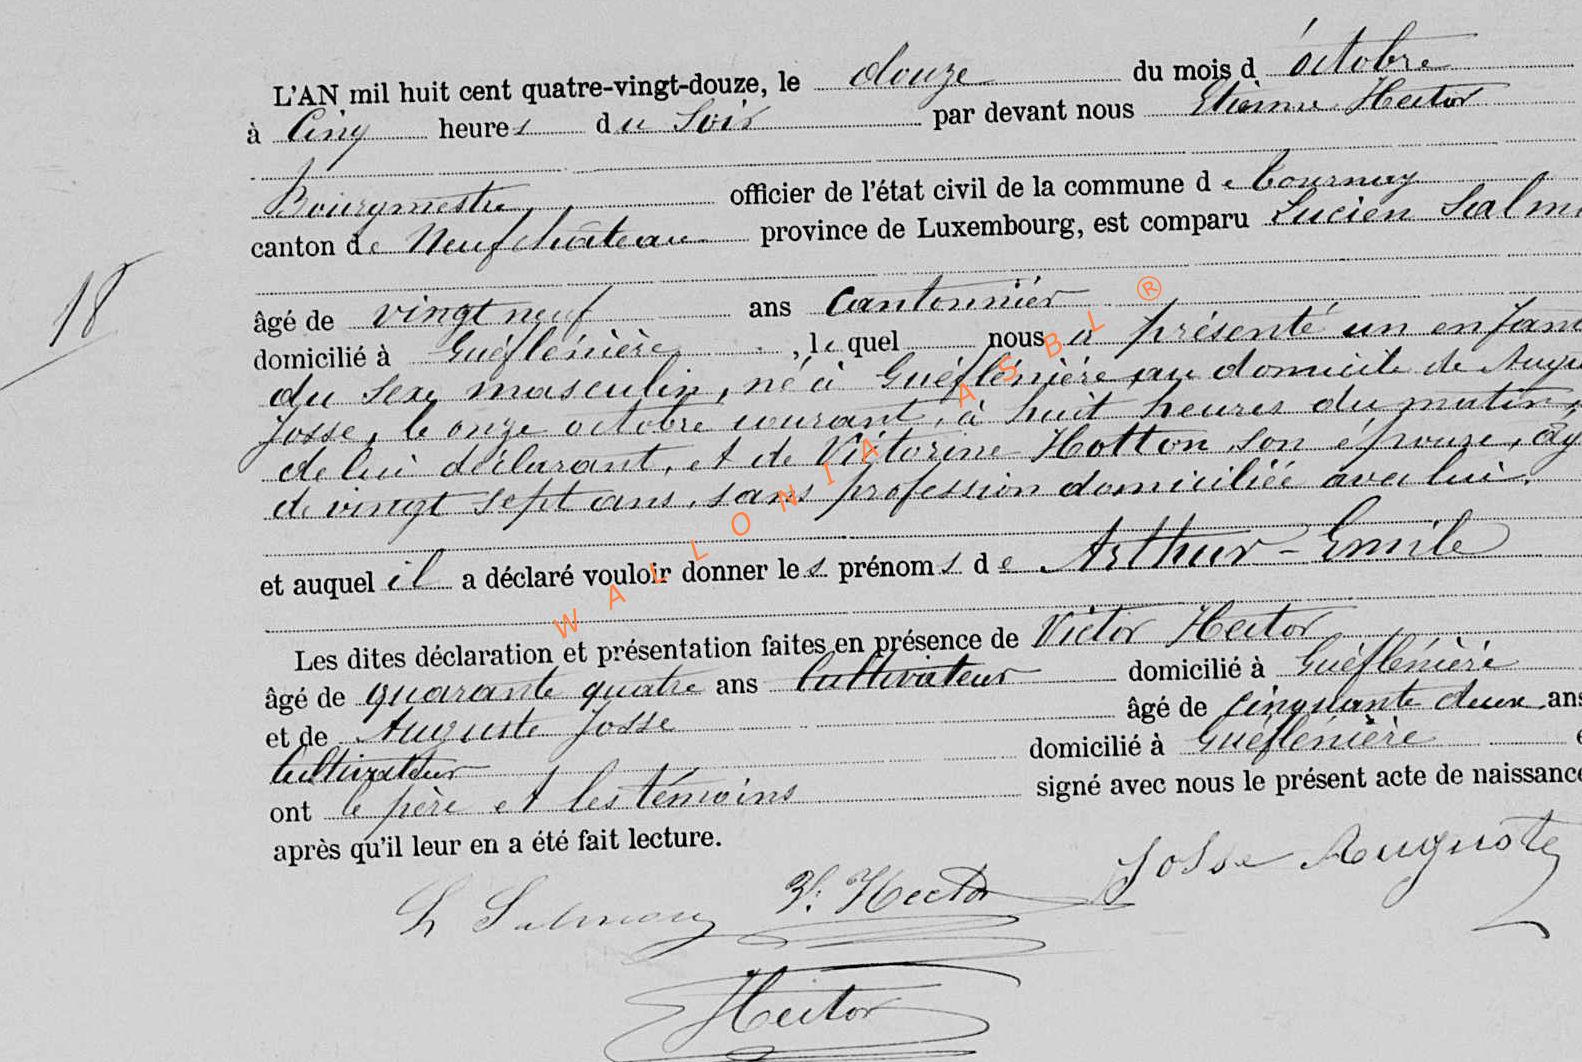 L'AN mil huit cent quatre-vingt-douze, le douze du mois d'octobre
à Cinq heures du Soir par devant nous Etienne Hector
Bourgmestre, officier de l'état civil de la commune de Tournay
canton de Neufchâteau province de Luxembourg, est comparu Lucien Salm
18
âgé de vingt neuf ans Cantonnier
domicilié à Gueflénière, lequel nous a présenté un enfan
du sexe masculin, né à Gueflénière au domicile de Augu
Josse, le onze octobre courant, à huit heures du matin,
de lui déclarant, et de Victorine Hotton son épouse, âg
de vingt sept ans, sans profession domiciliée avec lui.
et auquel il a déclaré vouloir donner les prénoms de Arthur-Emile
Les dites déclaration et présentation faites en présence de Victor Hector
âgé de quarante quatre ans Cultivateur domicilié à Gueflénière
et de Auguste Josse âgé de cinquante deux ans
Cultivateur domicilié à Gueflénière e
ont le père et les témoins signé avec nous le présent acte de naissance
après qu'il leur en a été fait lecture.
L Salmon V. Hector Josse Auguste
Hector
WALLONIA ASBL ®